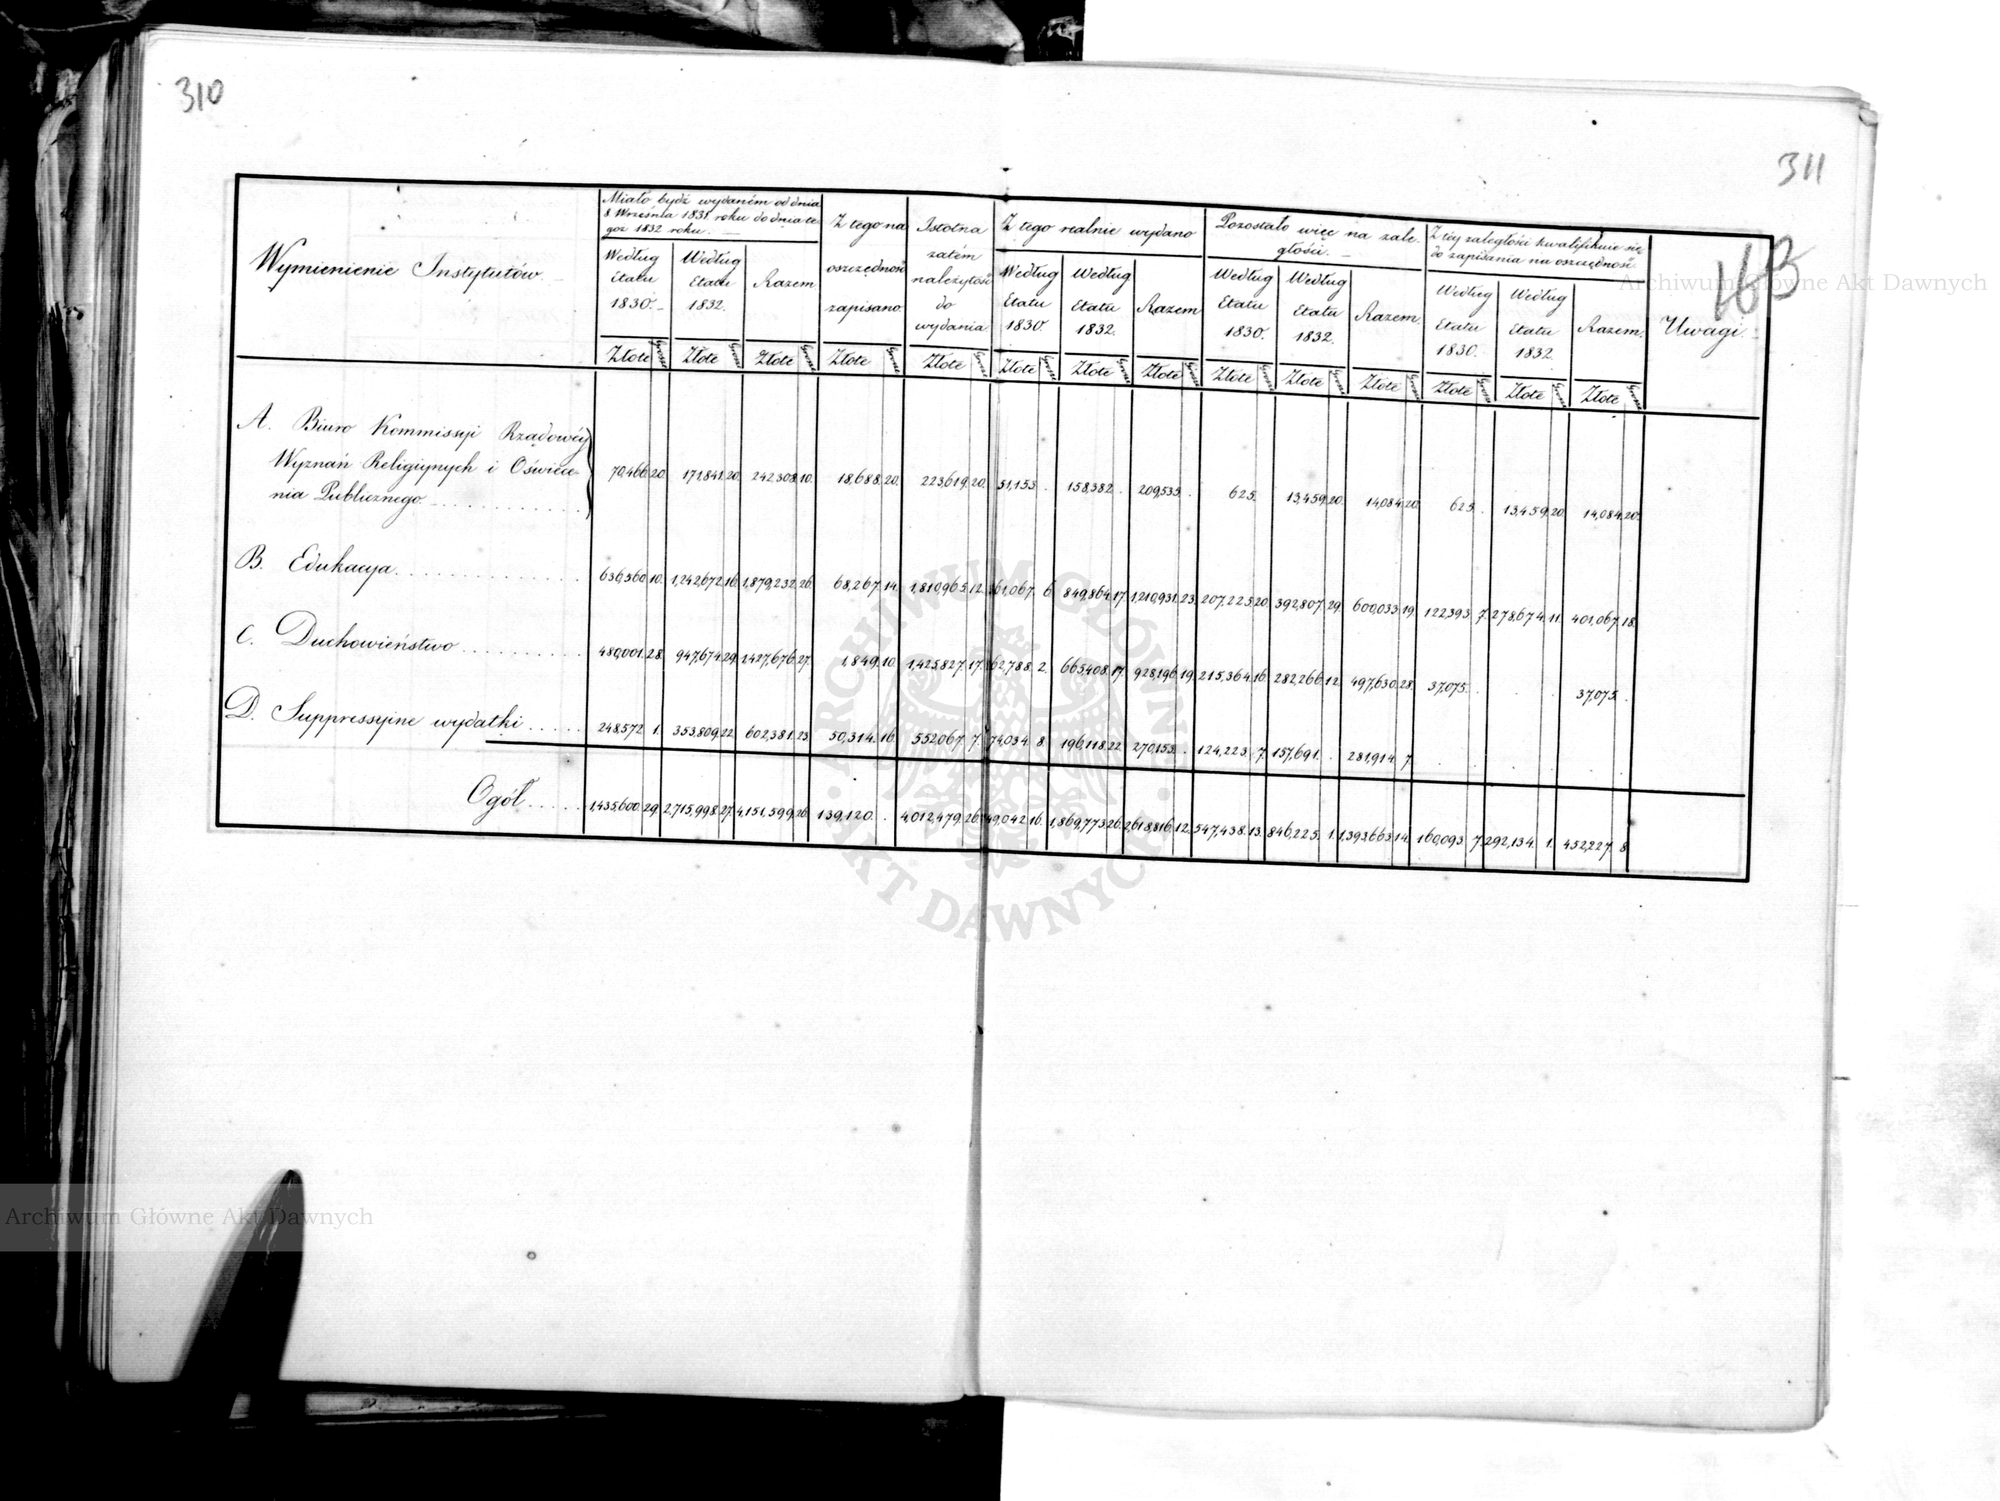 310
311
163
Wymienienie Instytutów.
Miało bydź wydaném od dnia
8 Września 1831 roku do dnia te
goż 1832 roku.
Według Etatu 1830.
Według Etatu 1832.
Razem
Z tego na oszczędność zapisano.
Istotna zatém należytość do wydania
Z tego realnie wydano
Według Etatu 1830.
Według Etatu 1832.
Razem
Pozostało więc na zale-
głości.
Według Etatu 1830.
Według Etatu 1832.
Razem.
Z téy zaległości kwalifikuie się
do zapisania na oszczędność.
Według Etatu 1830.
Według Etatu 1832
Razem.
Uwagi.
Złote Złote Złote Złote Złote Złote Złote Złote Złote Złote Złote Złote Złote Złote
A. Biuro Kommissyi Rządowéy
Wyznań Religiynych i Oświece-
nia Publicznego
70,466 20. 171,841 20. 242,308 10. 18,688 20. 223,619 20. 51,153 . 158,382 . 209,535 . 625. 13,459 20. 14,084 20. 625 . 13,459 20. 14,084 20.
B. Edukacya
636,560 10. 1,242,672 16. 1,879,232 26. 68,267 14. 1,810,965 12. 361,067 6. 849,864 17. 1,210,931 23. 207,225 20. 392,807 29. 600,033 19. 122,393 7. 278,674 11. 401,067 18.
C. Duchowieństwo
480,001 28. 947,674 29. 1,427,676 27. 1,849 10. 1,425,827 17. 262,788 2. 665,408 17. 928,196 19. 215,364 16. 282,266 12. 497,630 28. 37,075 . . . 37,075 .
D. Suppressyine wydatki
248,572 1. 353,809 22. 602,381 23. 50,314 16. 552,067 7. 74,034 8. 196,118 22. 270,153 . 124,223 7. 157,691 . 281,914 7.
Ogół
1,435,600 29. 2,715,998 27. 4,151,599 26. 139,120 . 4,012,479 26. 749,042 16. 1,869,773 26. 2,618,816 12. 547,438 13. 846,225 1. 1,393,663 14. 160,093 7. 292,134 1. 452,227 8.
Archiwum Główne Akt Dawnych
Archiwum Główne Akt Dawnych
ARCHIWUM GŁÓWNE
AKT DAWNYCH